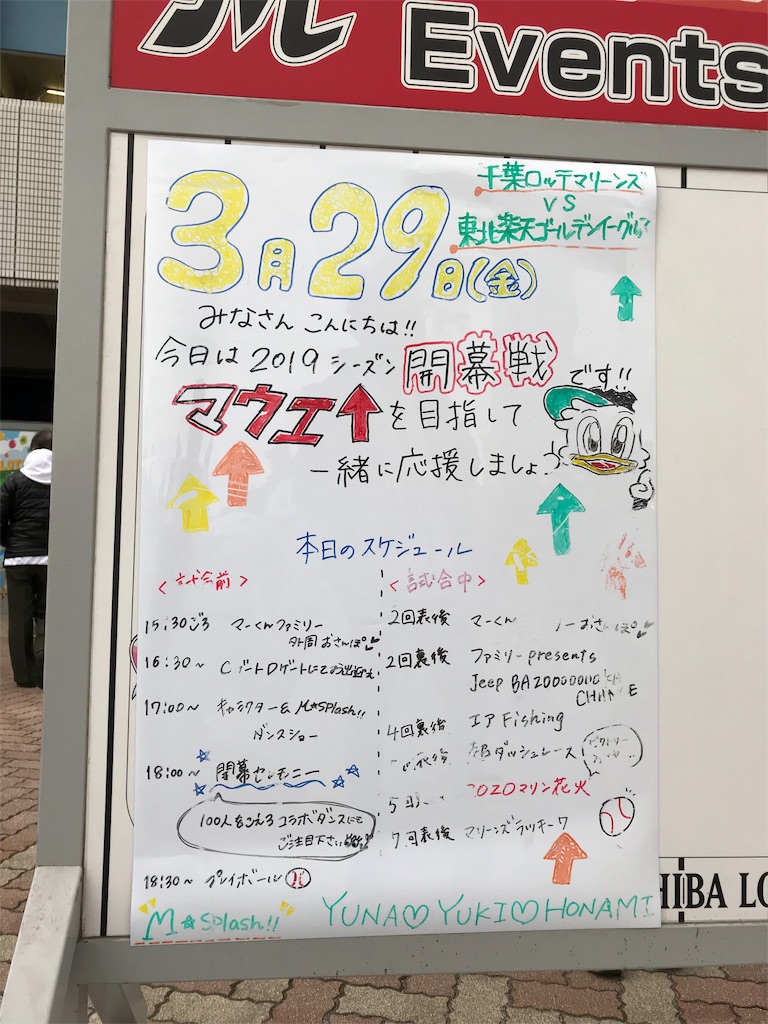 M Events
千葉ロッテマリーンズ
VS
東北楽天ゴールデンイーグルス
3月29日(金)
みなさん こんにちは!!
今日は2019シーズン 開幕戦 です!!
マウエ↑を目指して
一緒に応援しましょ
本日のスケジュール
<試合前>
15:30ごろ マーくんファミリー
外周おさんぽ♥
16:30~ CゲートDゲートにてお出迎え
17:00~ キャラクター& M☆Splash!!
ダンスショー
18:00~ 開幕セレモニー
100人をこえるコラボダンスにも
ご注目下さい
18:30~ プレイボール
<試合中>
2回表後 マーくん おさんぽ♥
2回裏後 ファミリーpresents
Jeep BAZOOOOOOKA
CHANCE
4回裏後 エア Fishing
ダッシュレース
5回 ZOZOマリン花火
7回表後 マリーンズラッキー7
M☆Splash!!
YUNA♡YUKI♡HONAMI
HIBA LO